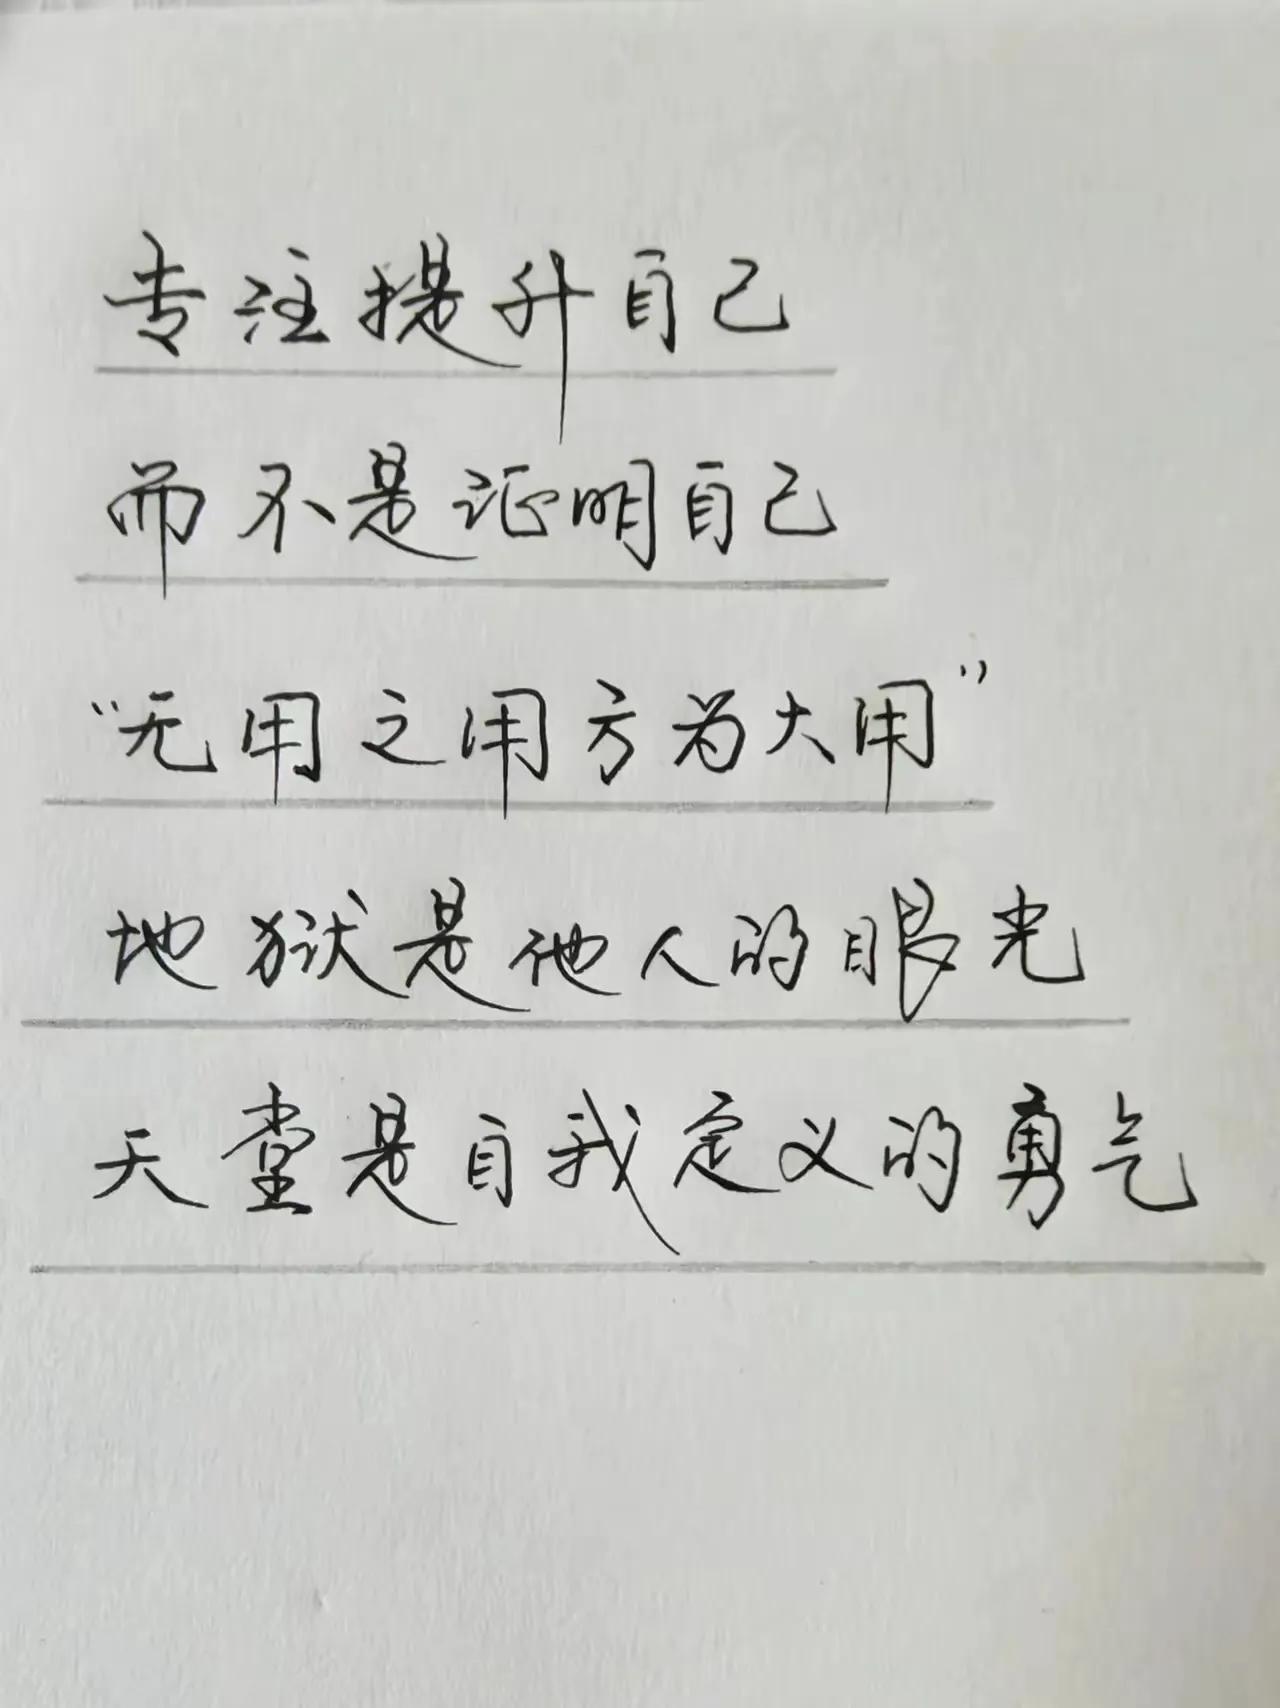 专注提升自己
而不是证明自己
“无用之用方为大用”
地狱是他人的眼光
天堂是自我定义的勇气